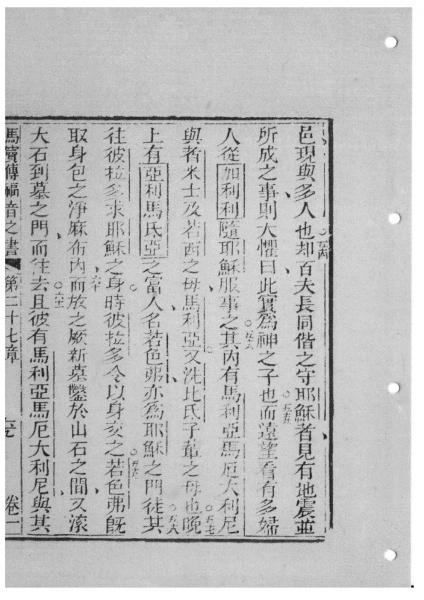 邑現與多人也却百夫長同偕之守耶穌者見有地震並
所成之事則大懼曰此實為神之子也而遠望看有多婦
人從加利利隨耶穌服事之其內有馬利亞馬厄大利尼
與者米士及若西之母馬利亞又洗比氏子輩之母也晚
上有亞利馬氏亞之富人名若色弗亦為耶穌之門徒其
往彼拉多求耶穌之身時彼拉多令以身交之若色弗既
取身包之淨麻布內而放之厥新墓鑿於山石之間又滾
大石到墓之門而往去且彼有馬利亞馬厄大利尼與其
馬竇傳福音之書 第二十七章 卷一